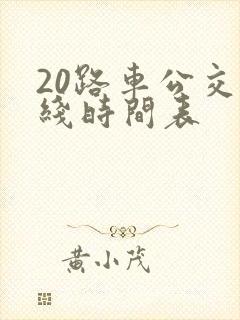 20路車公交
綫時間表
黃小茂